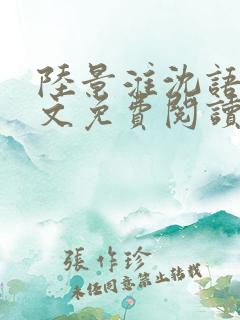 陸景淮沈語
文免費閱讀
張作珍
未經同意禁止轉載